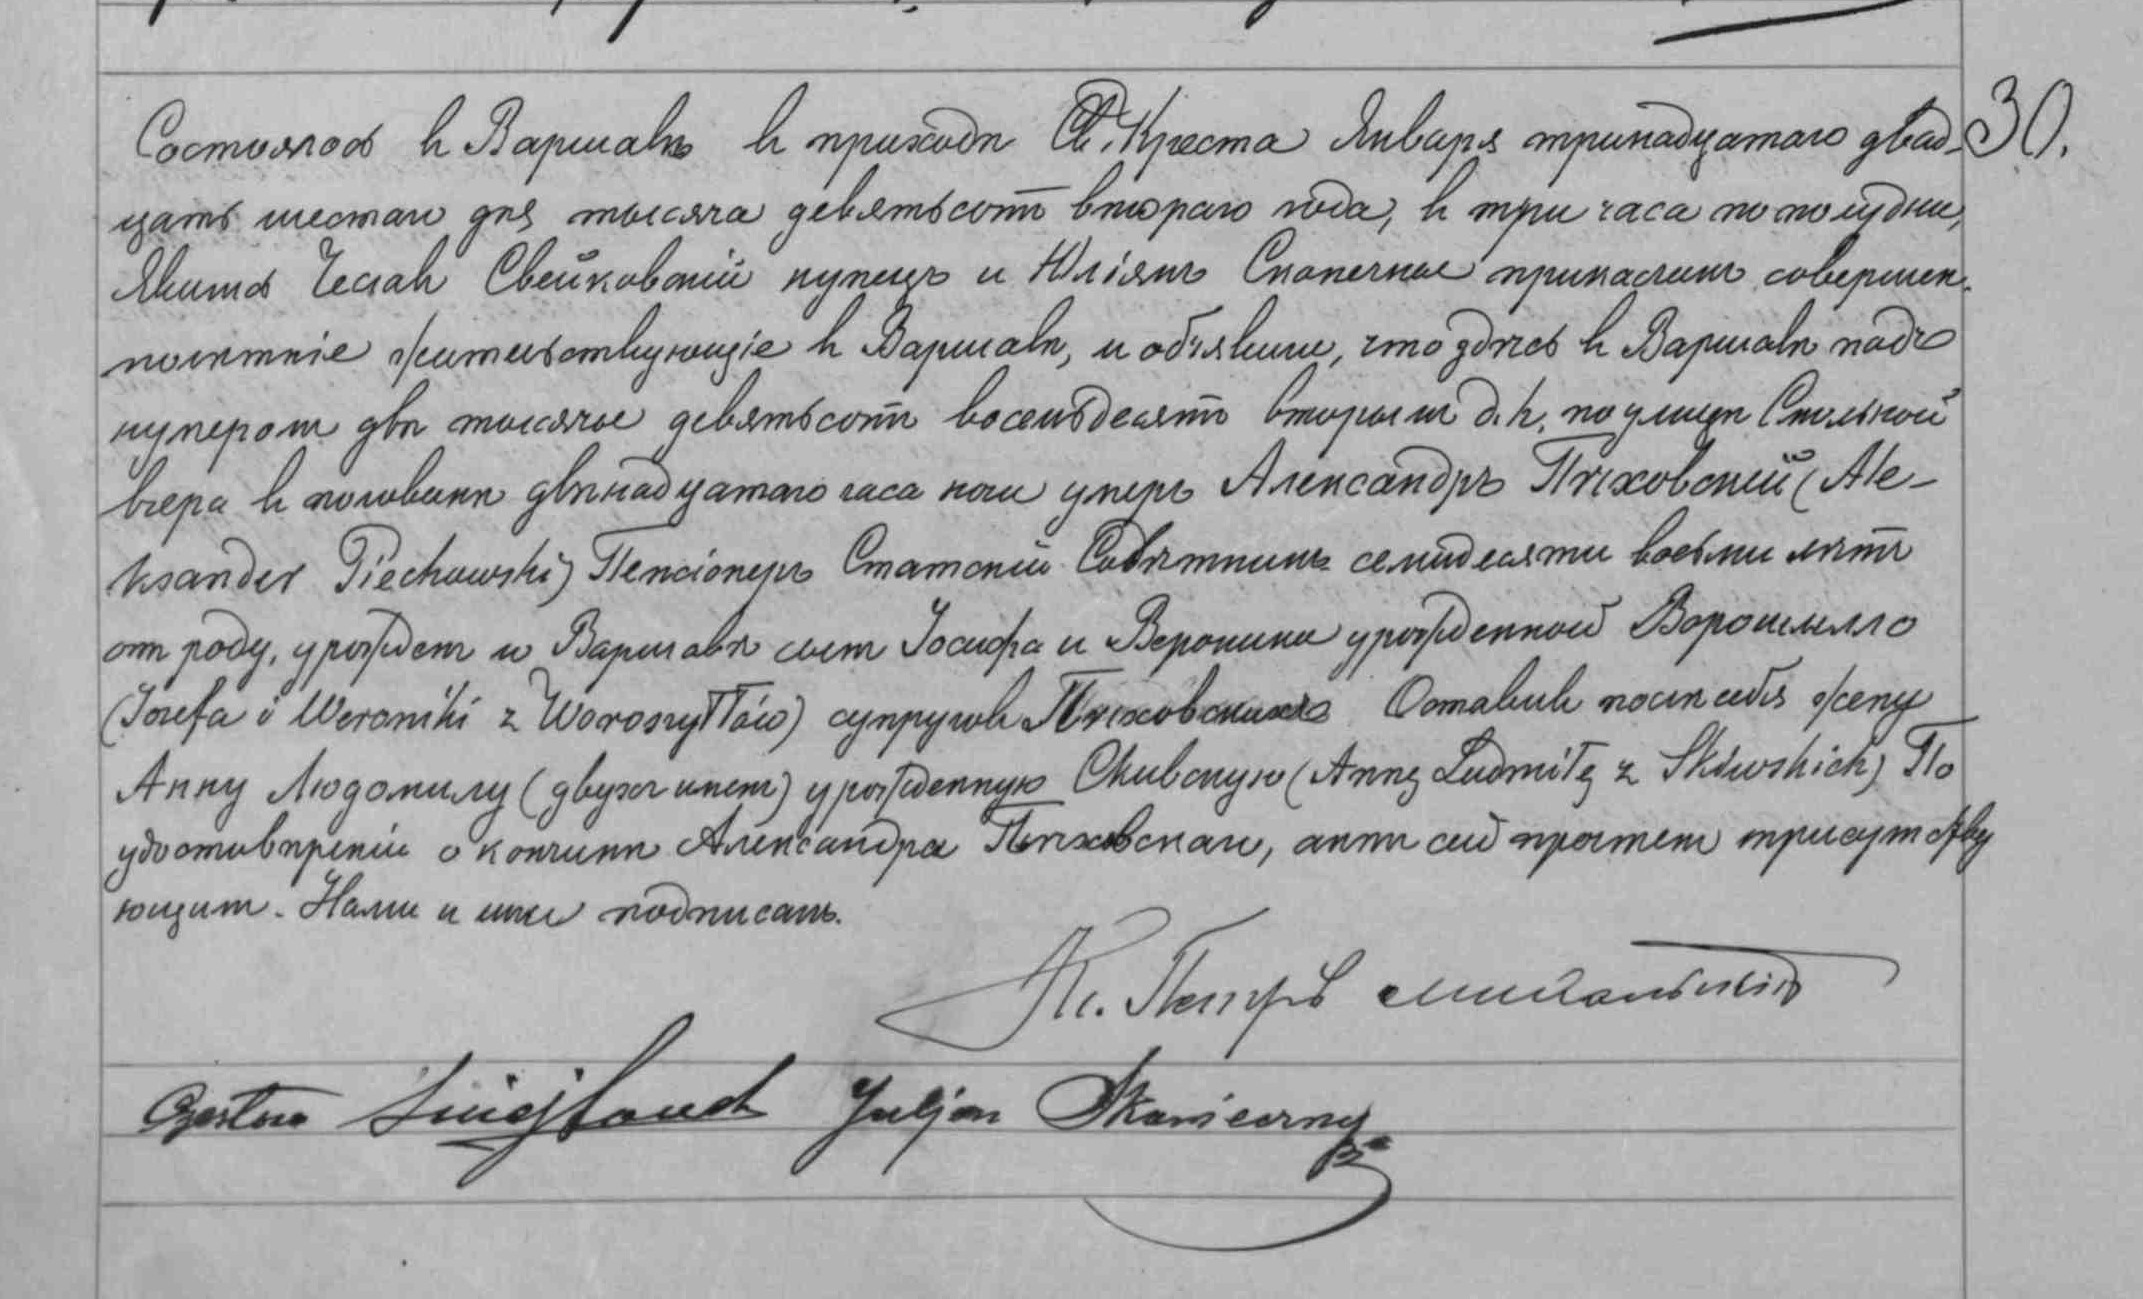 30.
Состоялось в Варшавѣ в приходѣ Св. Креста Января тринадцатаго двад-
цать шестаго дня тысяча девятьсотъ втораго года, в три часа по полудни,
Явились Чеслав Свейковскій купецъ и Юліянъ Сконечные приказчик совершен-
нолѣтніе жительствующіе в Варшавѣ, и объявили, что здѣсь в Варшавѣ подъ
нумером двѣ тысячи девятьсотъ восемьдесятъ вторым д. h. по улицѣ Смольной
вчера в половинѣ двѣнадцатаго часа ночи умеръ Александръ Пѣховскій (Ale-
ksander Piechowski) Пенсіонеръ Статскій Совѣтникъ семидесяти восьми лѣтъ
от роду, урожден в Варшавѣ сын Іосифа и Вероники урожденной Ворошилло
(Józefa i Weroniki z Woroszyłłów) супругов Пѣховскихъ Оставив послѣ себя жену
Анну Людомилу (двухъ имен) урожденную Скивскую (Annę Ludmiłę z Skiwskich) По
удостовѣреніи о кончинѣ Александра Пѣховскаго, актъ сей прочтен присутству
ющим. Нами и ими подписанъ.
Кс. Петръ
Czesław Juljan